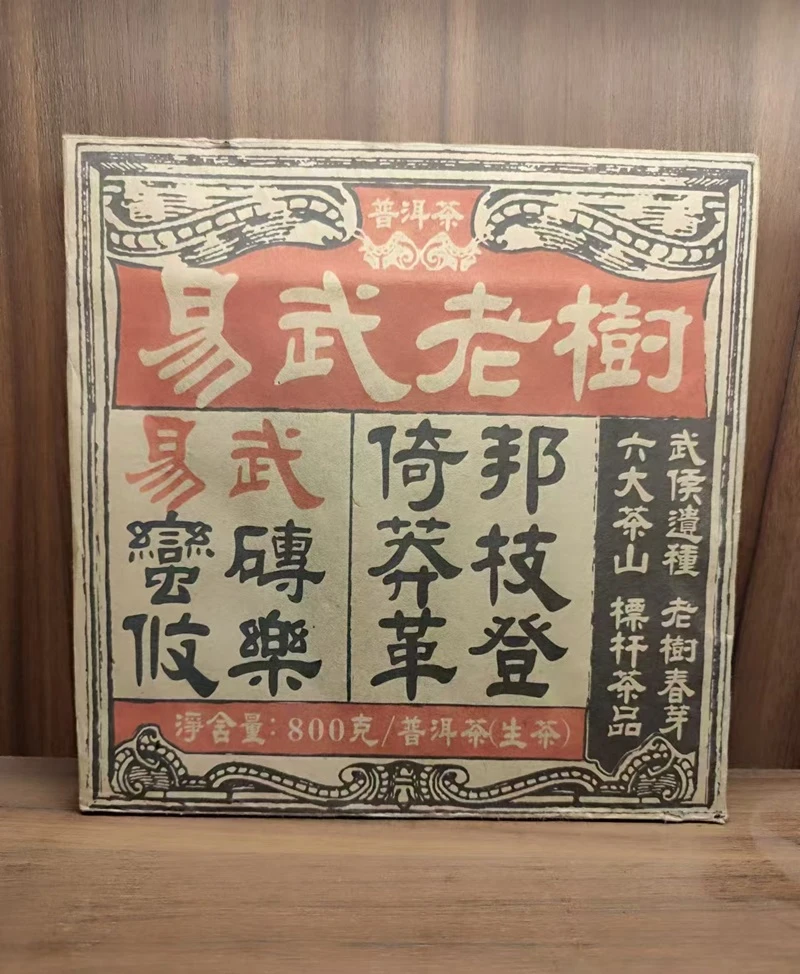 普洱茶
易武老樹
易武
蠻磚
攸樂
倚邦
莽枝
革登
武侯遺種 老樹春芽
六大茶山 標杆茶品
淨含量:800克/普洱茶(生茶)